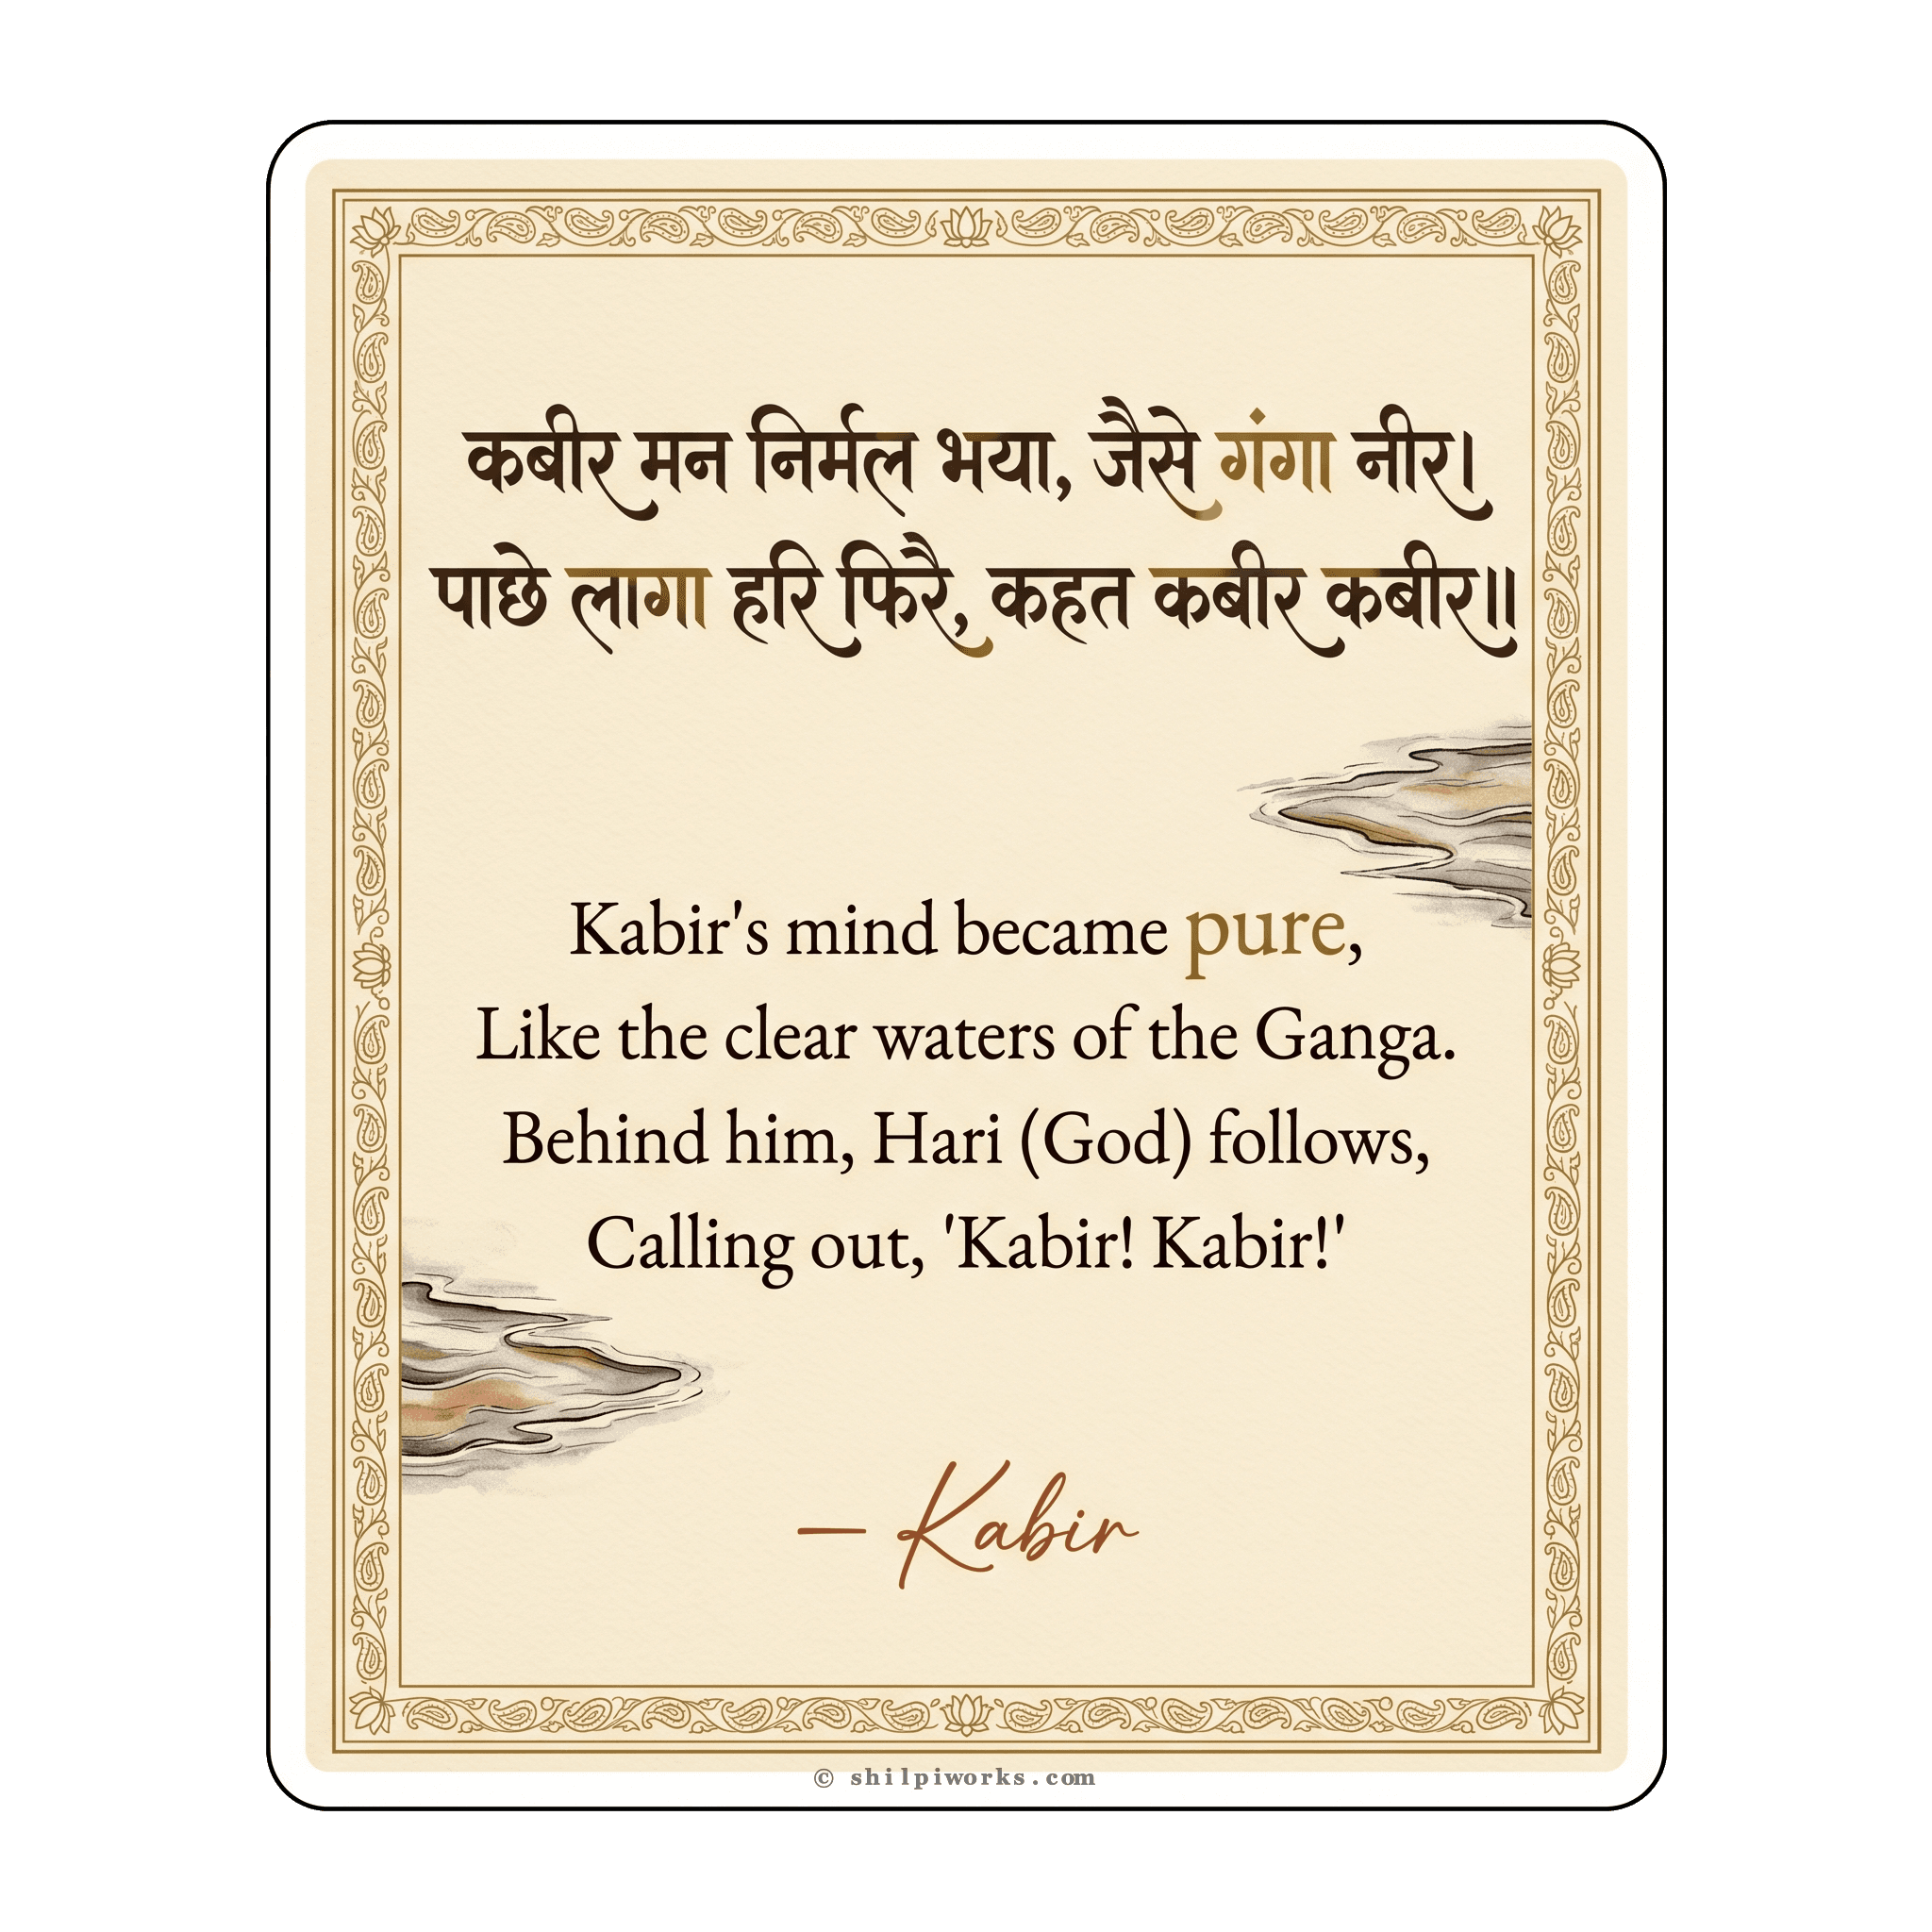 कबीर मन निर्मल भया, जैसे गंगा नीर।
पाछे लागा हरि फिरै, कहत कबीर कबीर॥
Kabir's mind became pure,
Like the clear waters of the Ganga.
Behind him, Hari (God) follows,
Calling out, 'Kabir! Kabir!'
— Kabir
© shilpiworks.com